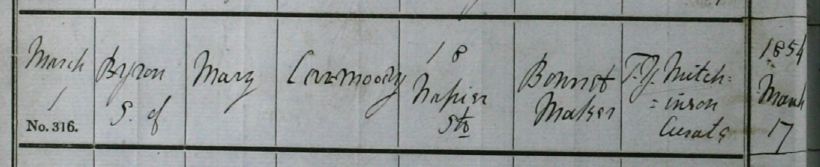 March
1
No. 316.
Byron
S. of
Mary
Carmoody
18
Napier
Sts
Bonnet
Maker
T. Y. Mitch=
=inson
Curate
1854
March
17